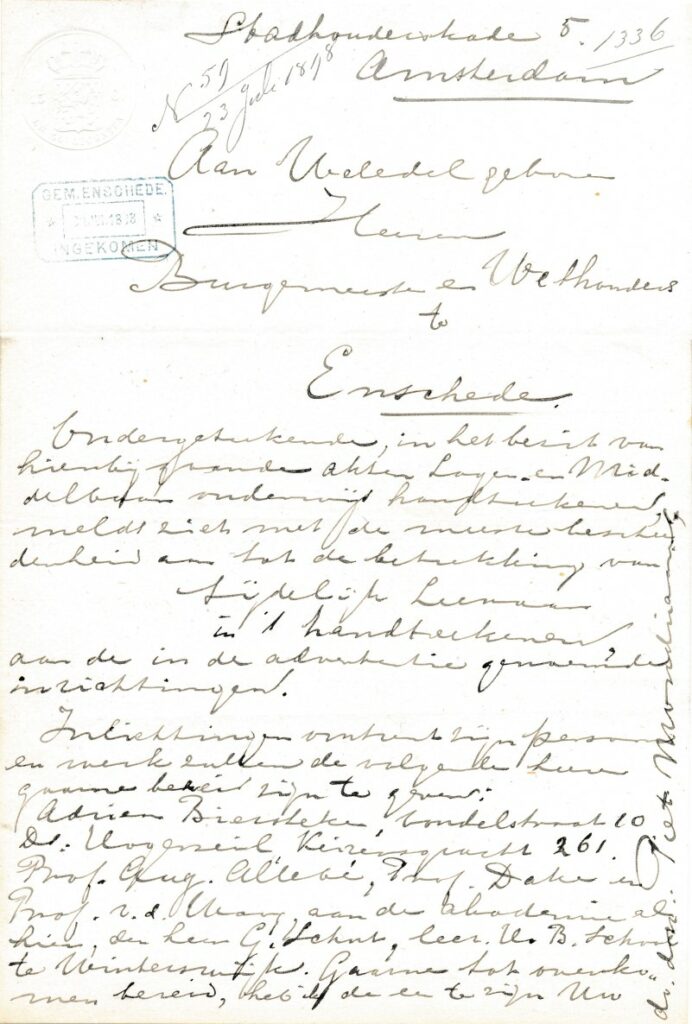 Stadhouderskade 5. 1336
Amsterdam
N 59
23 Juli 1898
Aan Weledel geboren
Heeren
GEM. ENSCHEDE.
INGEKOMEN
Burgemeester en Wethouders
te
Enschede.
Ondergeteekende, in het bezit van
hierbij gaande akten Lager- en Mid-
delbaar onderwijs handteekenen,
meldt zich met de meeste beschei
denheid aan tot de betrekking van
tijdelijk Leeraar
in 't handteekenen
aan de in de advertentie genoemde
inrichtingen.
Inlichtingen omtrent zijn persoon
en werk zullen de volgende heeren
gaarne bereid zijn te geven:
Adrien Biersteker Vondelstraat 10
Ds. Hogerzeil Keizersgracht 261.
Prof. Aug. Allebé, Prof. Dake en
Prof. v. d. Waay, aan de Akademie al
hier, den heer G. Schut, leer. H. B. School
te Winterswijk. Gaarne tot overko
men bereid, heb ik de eer te zijn Uw
dw. dnr. Piet Mondriaan